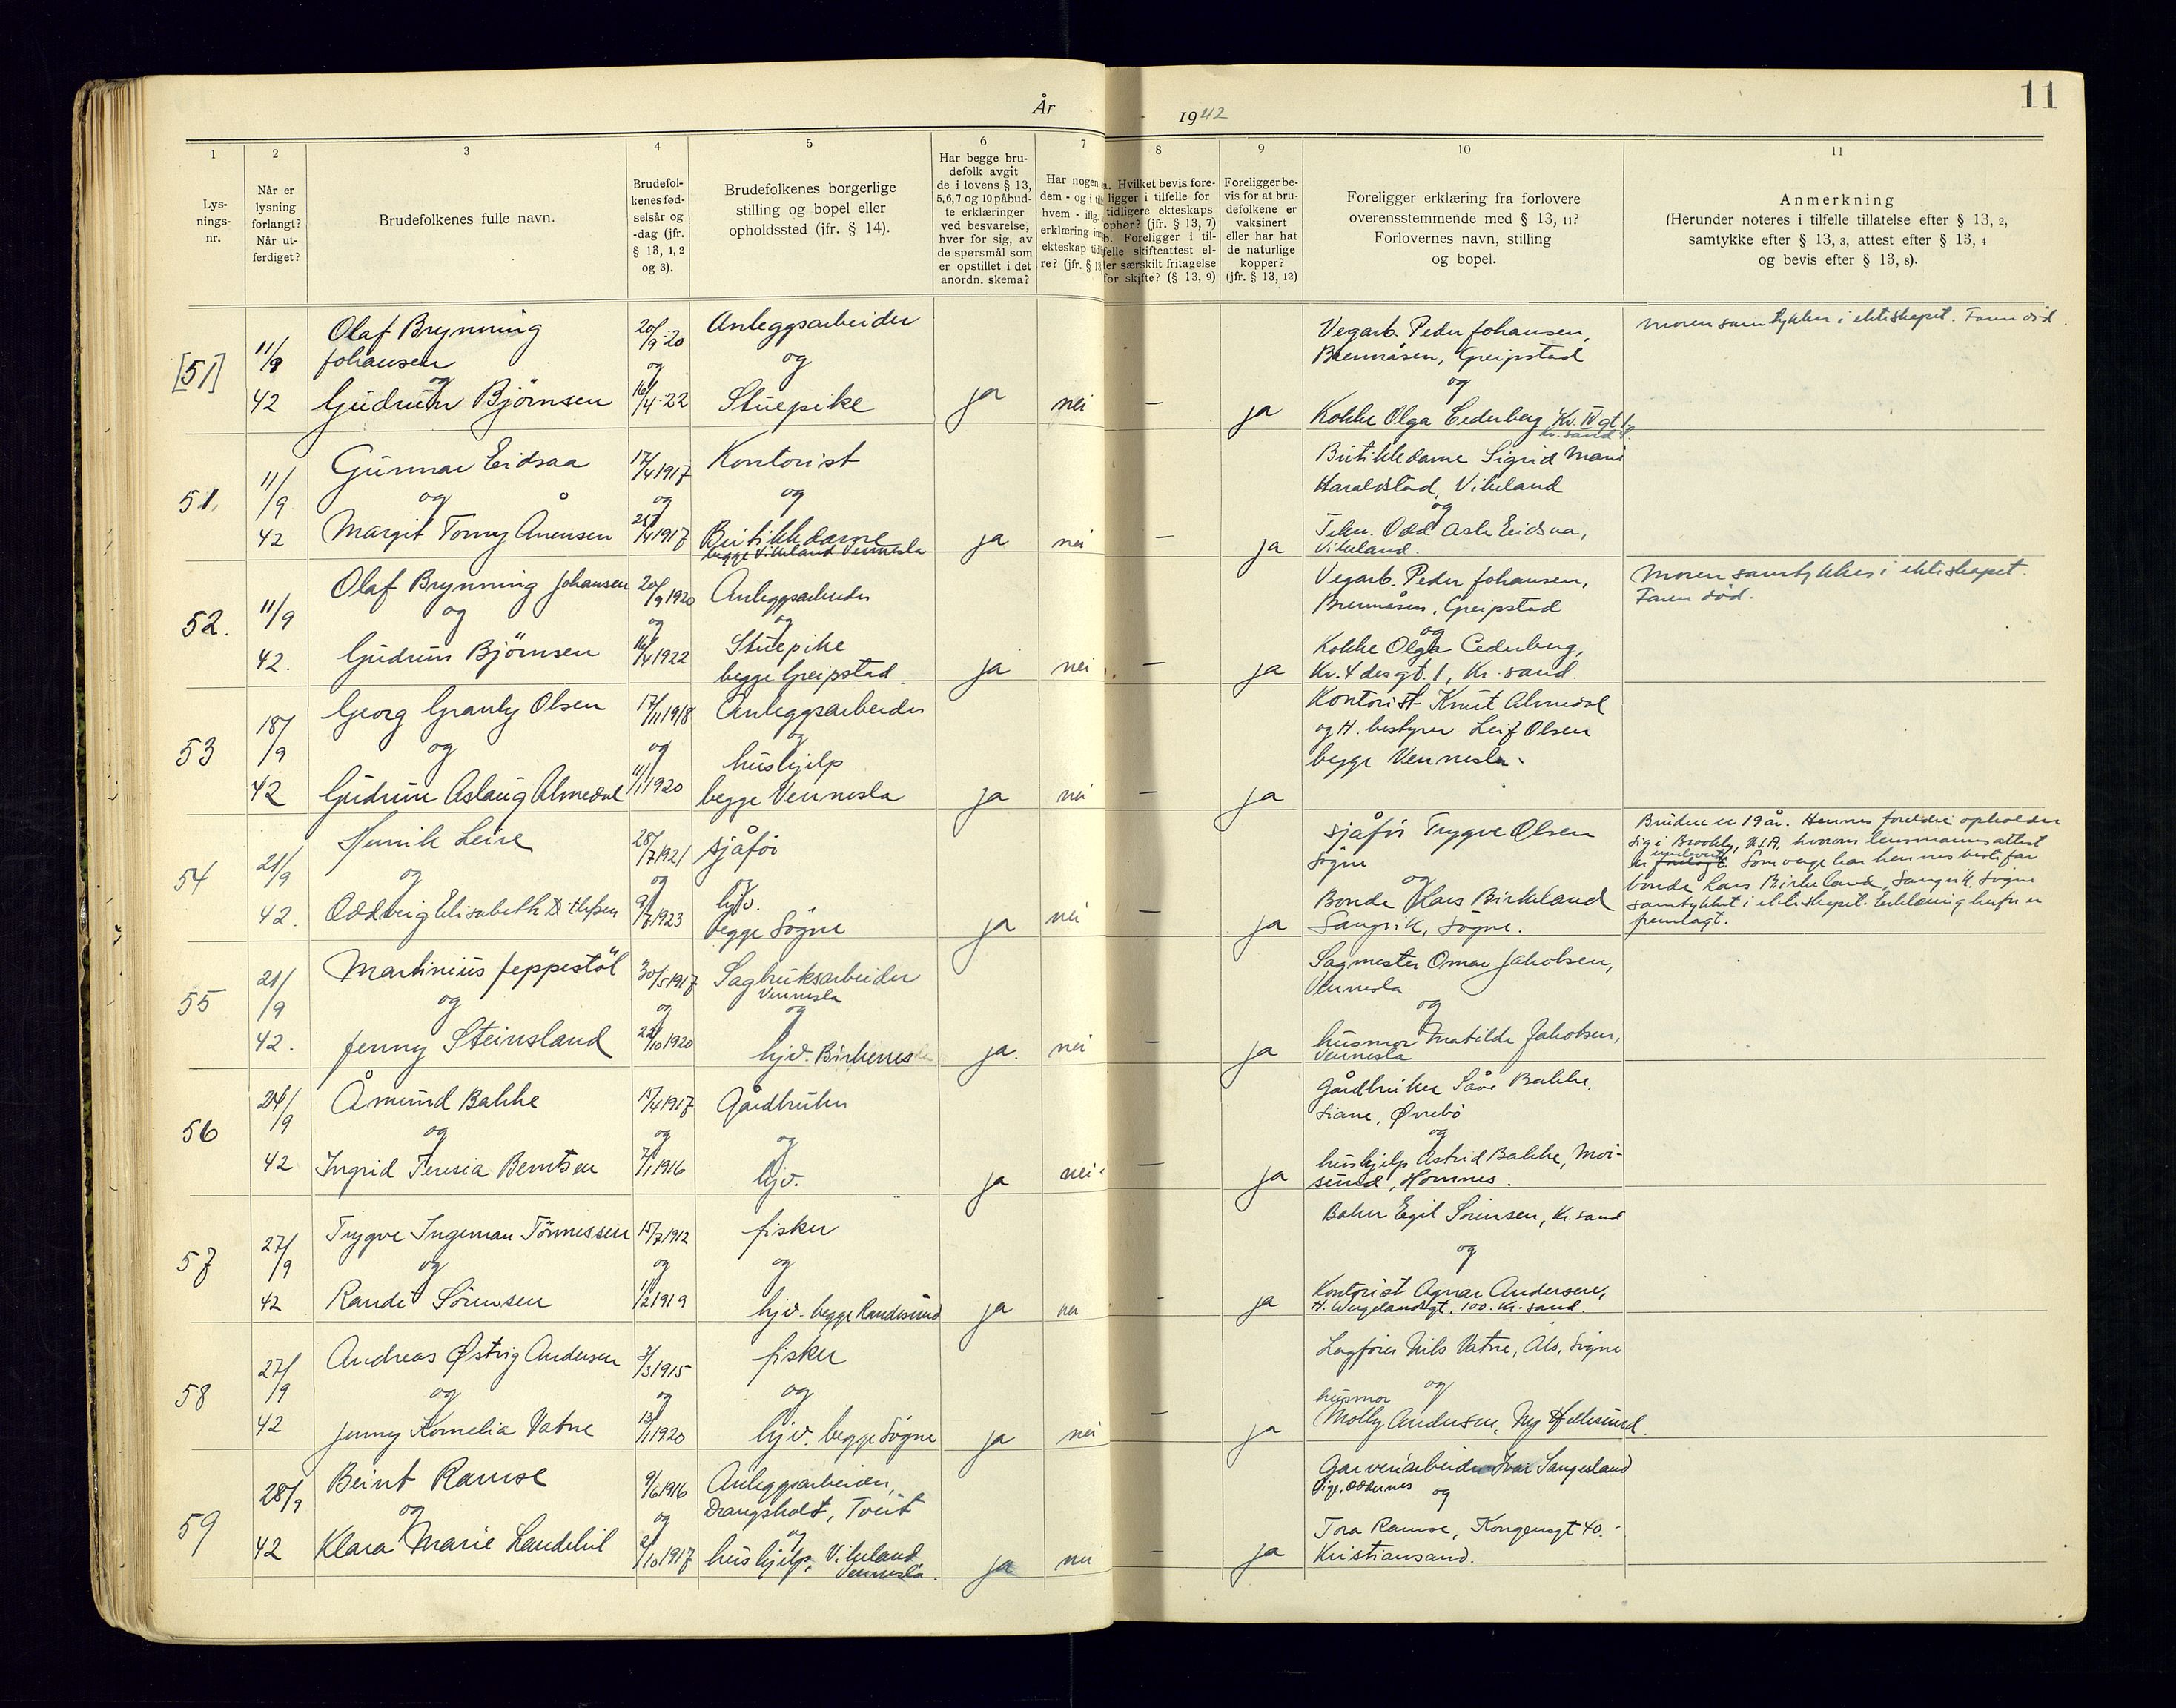 År 1942
11
1
2
3
4
5
6
7
8
9
10
11
Lys-
nings-
nr.
Når er
lysning
forlangt?
Når ut-
ferdiget?
Brudefolkenes fulle navn.
Brudefol-
kenes fød-
selsår og
-dag (jfr.
§ 13, 1, 2
og 3).
Brudefolkenes borgerlige
stilling og bopel eller
opholdssted (jfr. § 14).
Har begge bru-
defolk avgit
de i lovens § 13,
5,6,7 og 10 påbud-
te erklæringer
ved besvarelse,
hver for sig, av
de spørsmål som
er opstillet i det
anordn. skema?
Har nogen
dem - og i
hvem - iflg.
erklæring
ekteskap
re? (jfr. §
a. Hvilket bevis fore-
ligger i tilfelle for
tidligere ekteskaps
ophør? (jfr. § 13, 7)
b. Foreligger i til-
felle skifteattest el-
ler særskilt fritagelse
for skifte? (§ 13, 9)
Foreligger be-
vis for at bru-
defolkene er
vaksinert
eller har hat
de naturlige
kopper?
(jfr. § 13, 12)
Foreligger erklæring fra forlovere
overensstemmende med § 13, 11?
Forlovernes navn, stilling
og bopel.
Anmerkning
(Herunder noteres i tilfelle tillatelse efter § 13, 2,
samtykke efter § 13, 3, attest efter § 13, 4
og bevis efter § 13, 8).
[51]
11/9
42
Olaf Brynning
Johansen
og
Gudrun Björnsen
20/9-20
og
16/4-22
Anleggsarbeider
og
Stuepike
ja
nei
—
ja
Vegarb. Peder Johansen,
Brennåsen, Greipstad
og
Kokke Olga Cederberg Kv. IV gt 1
kr. sand S.
Moren samtykker i ekteskapet. Faren död.
51.
11/9
42
Gunnar Eidsaa
og
Margit Tonny Ånensen
17/4 1917
og
25/4 1917
Kontorist
og
Butikkdame
begge Vikeland Vennesla
ja
nei
—
ja
Butikkdame Sigrid Marie
Haraldstad, Vikeland
og
Tekn. Odd Eidsaa,
Vikeland.
52.
11/9
42.
Olaf Brynning Johansen
og
Gudrun Björnsen
20/9 1920
og
16/4 1922
Anleggsarbeider
og
Stuepike
begge Greipstad.
ja
nei
—
ja
Vegarb. Peder Johansen,
Brennåsen, Greipstad
og
Kokke Olga Cederberg,
Kv. 4 des gt. 1, Kr. sand.
Moren samtykker i ekteskapet.
Faren död.
53
18/9
42
Georg Granly Olsen
og
Gudrun Aslaug Almedal
17/11 1918
og
11/1 1920
Anleggsarbeider
og
hushjelp
begge Vennesla
ja
nei
—
ja
Kontorist Knut Almedal
og H. bestyrer Leif Olsen
begge Vennesla.
54
21/9
42.
Henrik Leire
og
Oddveig Elisabeth Ditlefsen
28/7 1921
og
9/7 1923
sjåför
og
hjv.
begge Sögne
ja
nei
—
ja
sjåför Trygve Olsen
Sögne
og
Bonde Lars Birkeland
Langvik, Sögne.
Bruden er 19 år. Hennes foreldre opholder
sig i Brookly, U.S.A, hvorom lensmannsattest
er innlevert. Som verge har hennes bestefar
bonde Lars Birkeland, Langvik, Sögne
samtykket i ekteskapet. Erklæring herfor er
fremlagt.
55
21/9
42.
Martinius Jeppestöl
og
Jenny Steinsland
30/5 1917
og
22/10 1920
Sagbruksarbeider
Vennesla
og
hjv. Birkenes
ja.
nei
—
ja
Sagmester Omar Jakobsen,
Vennesla
og
husmor Matilde Jakobsen,
Vennesla
56
24/9
42
Åmund Bakke
og
Ingrid Teresia Berntsen
15/4 1917
og
7/1 1916
Gårdbruker
og
hjv.
ja
nei
—
ja
Gårdbruker Såve Bakke,
Liane, Øvrebö
og
hushjelp Astrid Bakke, Moi-
sund, Homnes.
57
27/9
42
Trygve Ingeman Tönnessen
og
Randi Sörensen
15/7 1912
og
1/2 1919
fisker
og
hjv. begge Randesund
ja
nei
—
ja
Baker Egil Sörensen, Kr. sand
og
Kontorist Agnar Andersen,
H. Wergelandsgt. 100. Kr. sand.
58
27/9
42
Andreas Østvig Andersen
og
Jenny Kornelia Vatne
3/3 1915
og
13/1 1920
fisker
og
hjv. begge Sögne
ja
nei
—
ja
Lagförer Nils Vatne, Ålo, Sögne
og
husmor
Molly Andersen, Ny Hellesund.
59
28/9
42
Beint Ramse
og
Klara Marie Landehil
9/6 1916
og
2/10 1917
Anleggsarbeider,
Drangsholt, Tveit
og
hushjelp, Vikeland
Vennesla.
ja
nei
—
ja
Garveriarbeider Ivar Langeland
Vige. Oddernes og
Tora Ramse, Kongensgt 40.-
Kristiansand.